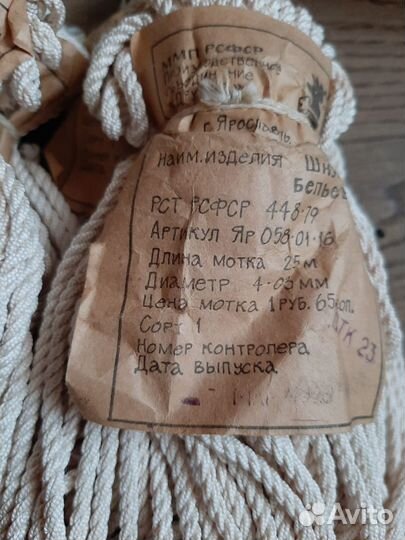 ММП РСФСР
ПРОИЗВОДСТВЕННОЕ
г. Ярославль
НАИМ. ИЗДЕЛИЯ Шну
Бельев
РСТ РСФСР 448-79
Артикул ЯР 058-01-16
Длина мотка 25 м
Диаметр 4-05 мм
Цена мотка 1 руб. 65 коп.
Сорт 1
Номер контролера
Дата выпуска
ОТК 23
Avito